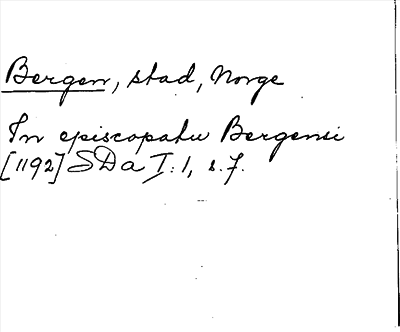 Bergen, stad, Norge
In episcopatu Bergensi
[1192] SDa I:1, s.7.